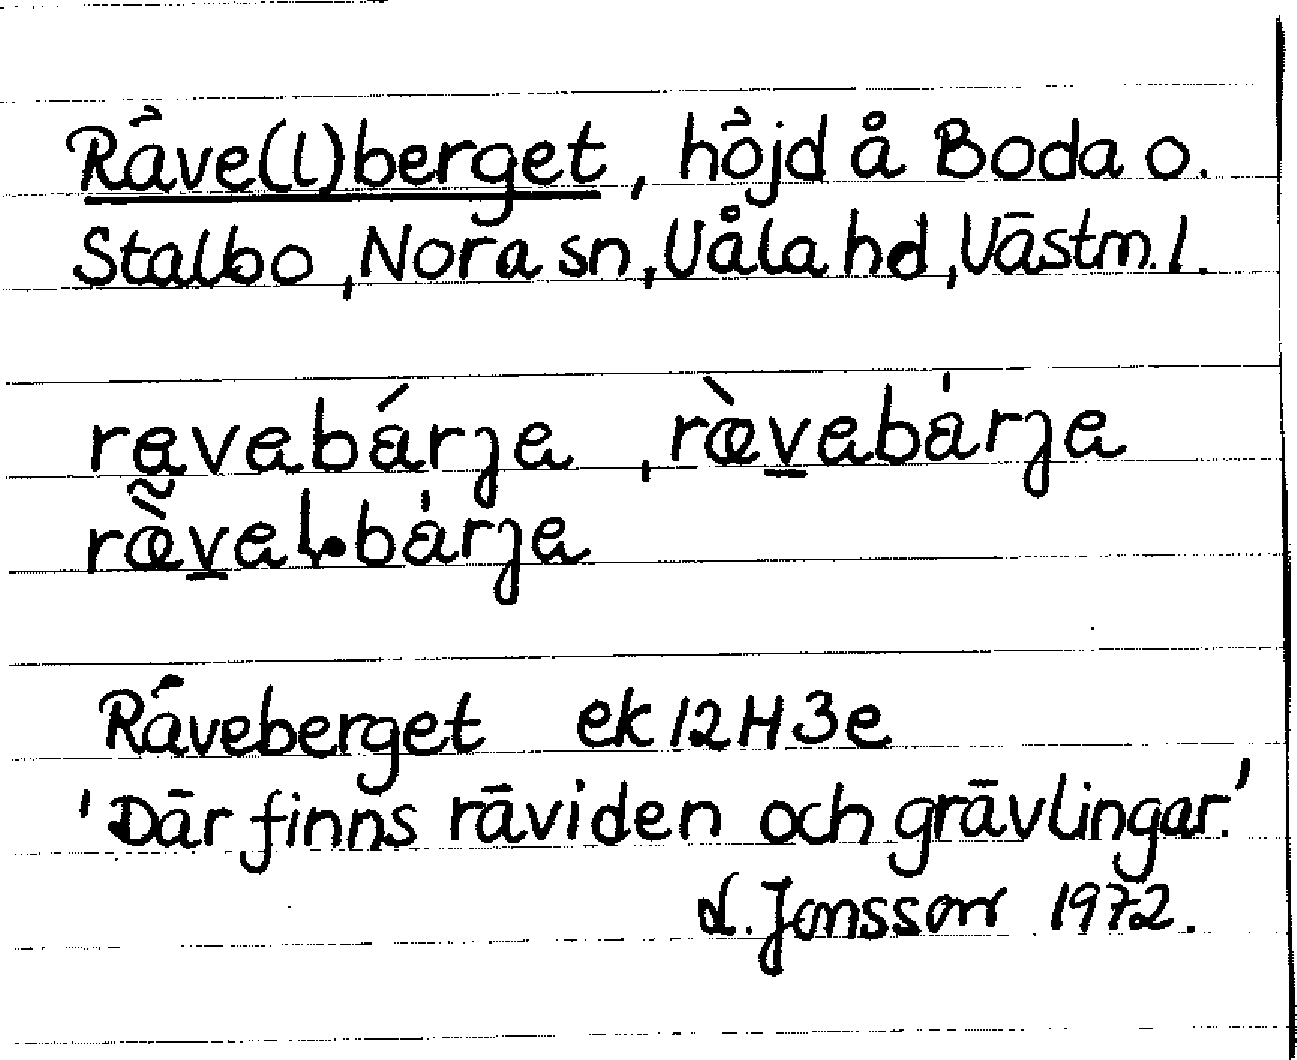 Räve(l)berget, höjd å Boda o.
Stalbo, Nora sn, Våla hd, Västm.l.
ravabárja, rævabárja
rævalbárja
Räveberget ek 12H3e
'Där finns räviden och grävlingar.'
L. Jonsson 1972.